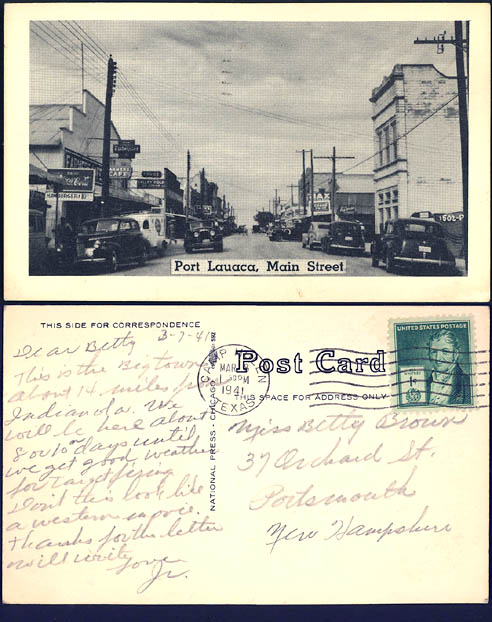 Coca-Cola
HAMBURGERS
CAFE
JAX
1502-P
Port Lauaca, Main Street
THIS SIDE FOR CORRESPONDENCE
3-7-41
Dear Betty
This is the Big town
about 14 miles from
Indianola. We
will be here about
8 or 10 days until
we get good weather
for Target firing
Don't this look like
a western movie.
Thanks for the letter
will write
Love
Jr.
NATIONAL PRESS - CHICAGO
CAMP
MAR
PM
1941
TEXAS
Post Card
THIS SPACE FOR ADDRESS ONLY
UNITED STATES POSTAGE
1c
Miss Betty Brown
37 Orchard St.
Portsmouth
New Hampshire